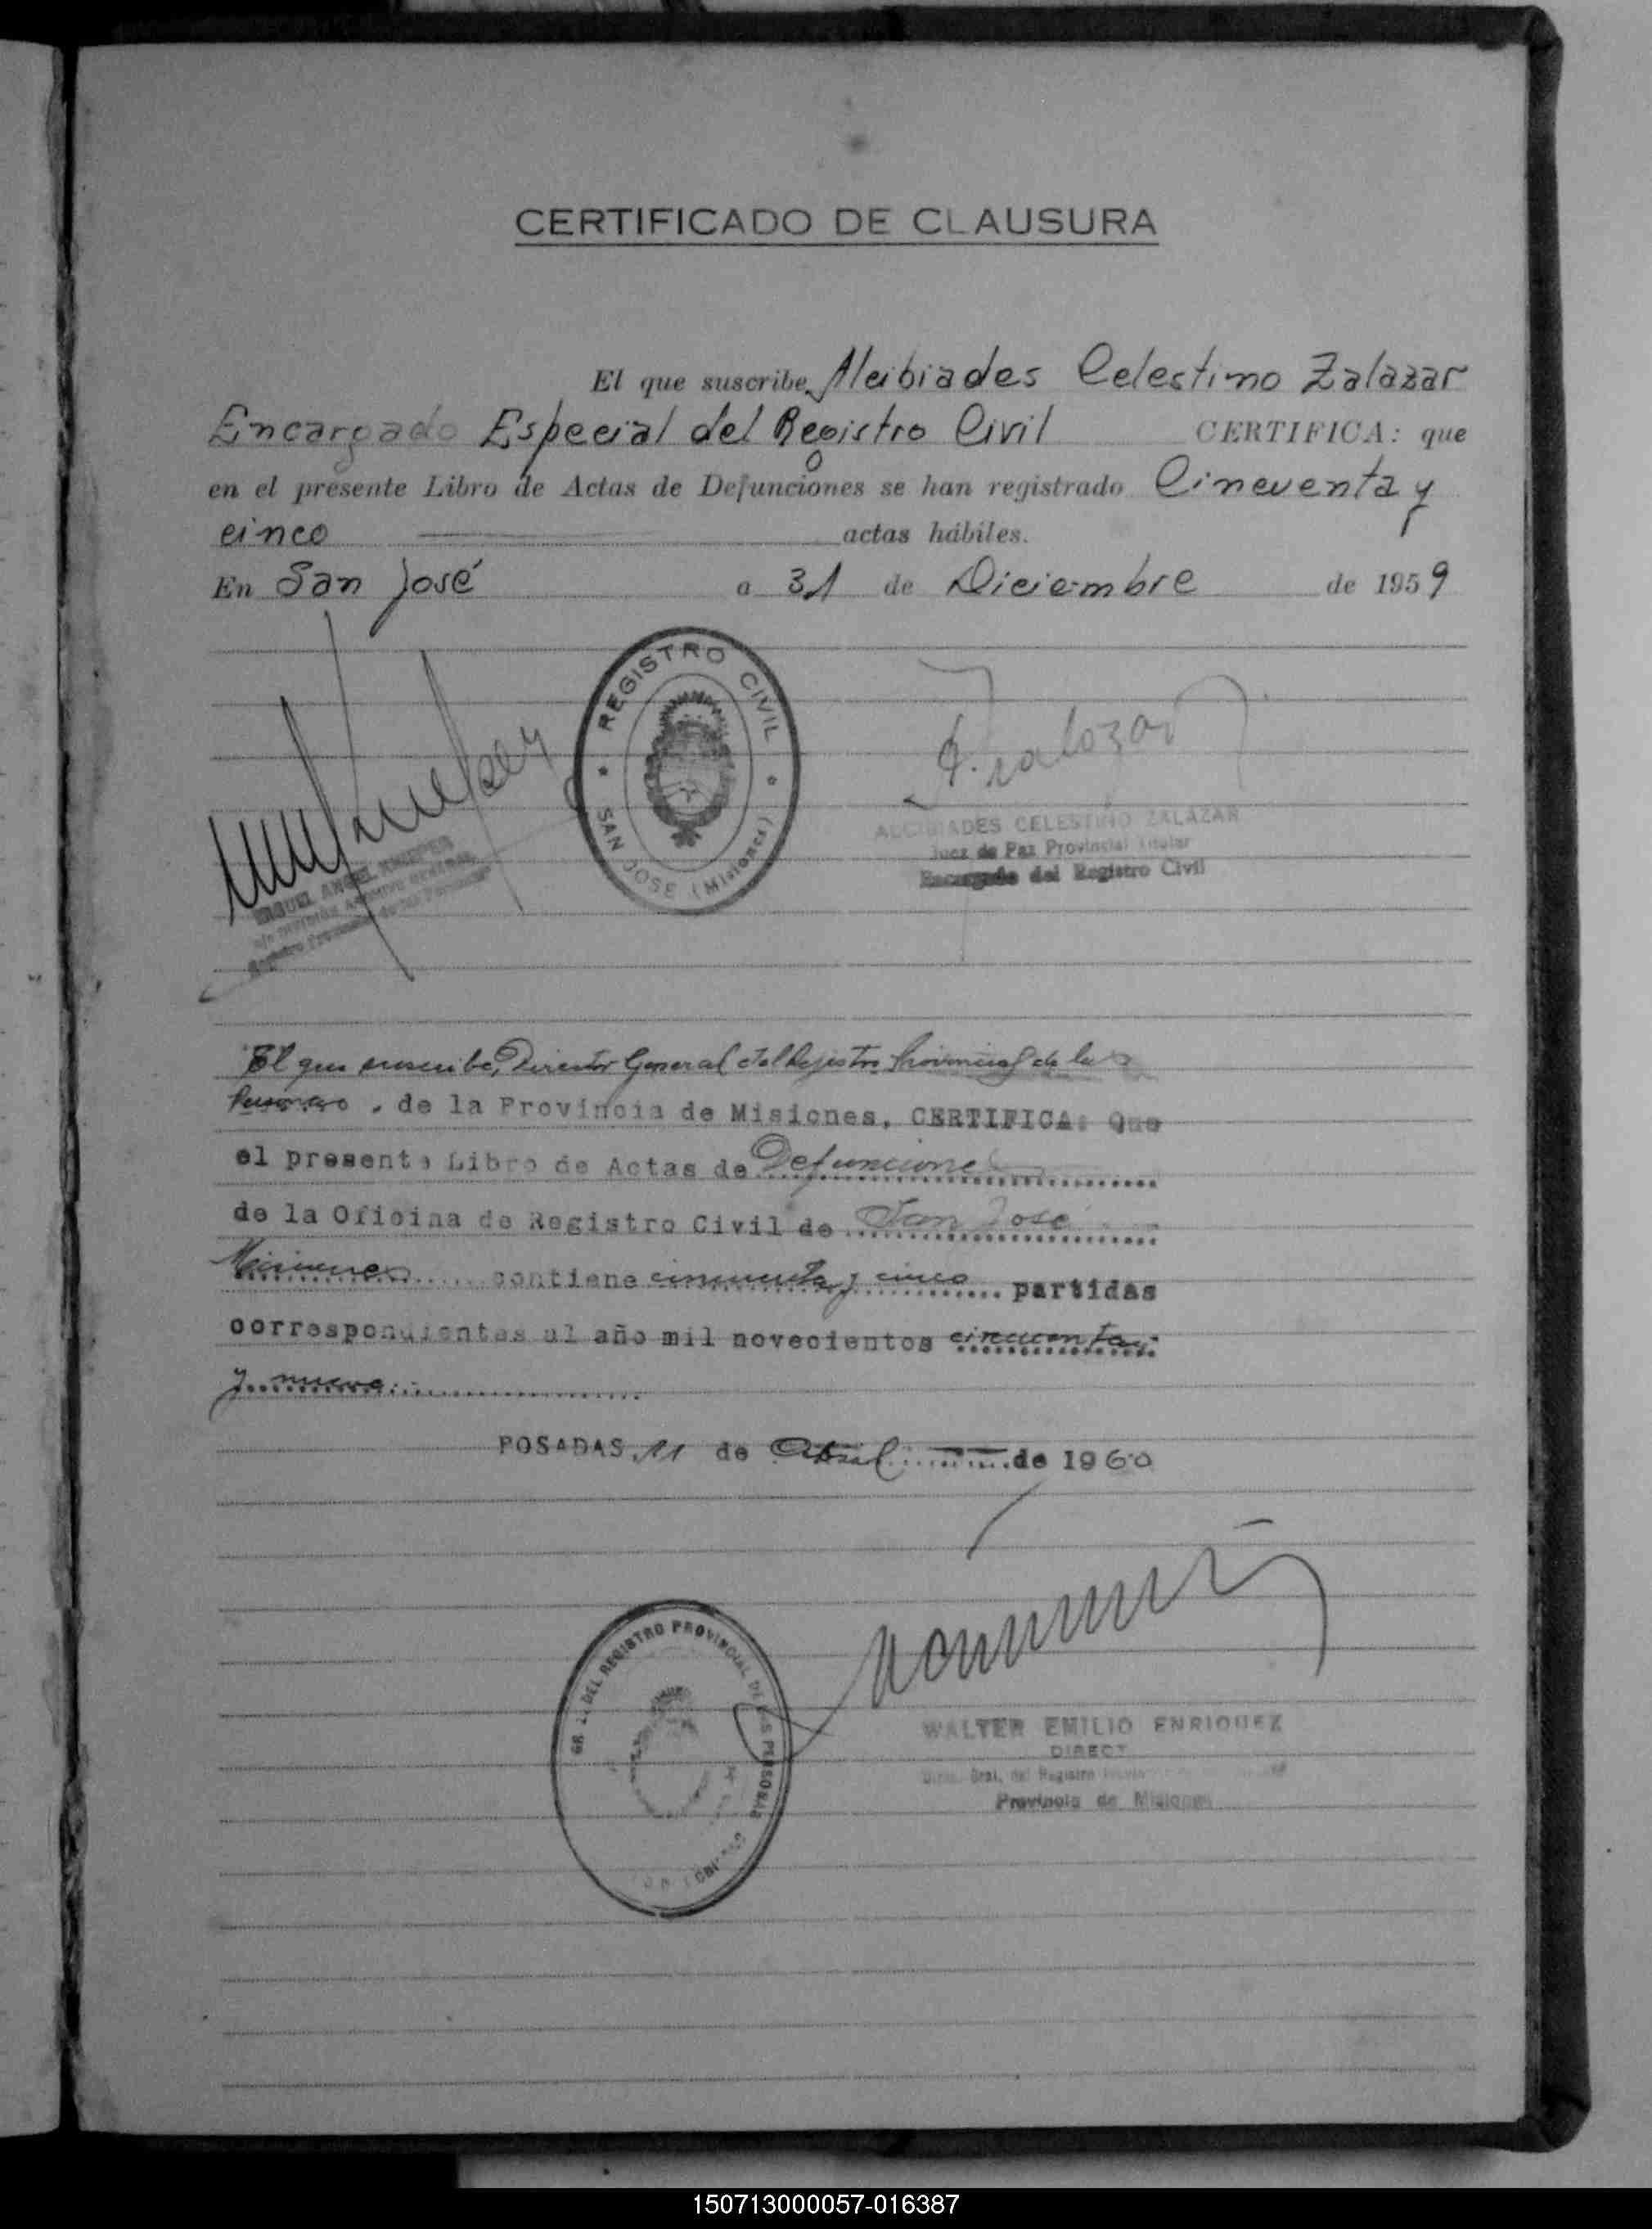 CERTIFICADO DE CLAUSURA
El que suscribe, Alcibiades Celestino Zalazar
Encargado Especial del Registro Civil CERTIFICA: que
en el presente Libro de Actas de Defunciones se han registrado Cincuenta y
cinco actas hábiles.
En San José a 31 de Diciembre de 1959
REGISTRO CIVIL
SAN JOSE (Misiones)
A. Zalazar
ALCIBIADES CELESTINO ZALAZAR
Juez de Paz Provincial Titular
Encargado del Registro Civil
MIGUEL ANGEL
El que suscribe, Director General del Registro Provincial de las
Personas, de la Provincia de Misiones, CERTIFICA: Que
el presente Libro de Actas de Defunciones
de la Oficina de Registro Civil de San José
Misiones contiene cincuenta y cinco partidas
correspondientes al año mil novecientos cincuenta
y nueve
POSADAS, 11 de Abril de 1960
DEL REGISTRO PROVINCIAL DE LAS PERSONAS
WALTER EMILIO ENRIQUEZ
DIRECT
Gral. del Registro
Provincia de Misiones
150713000057-016387